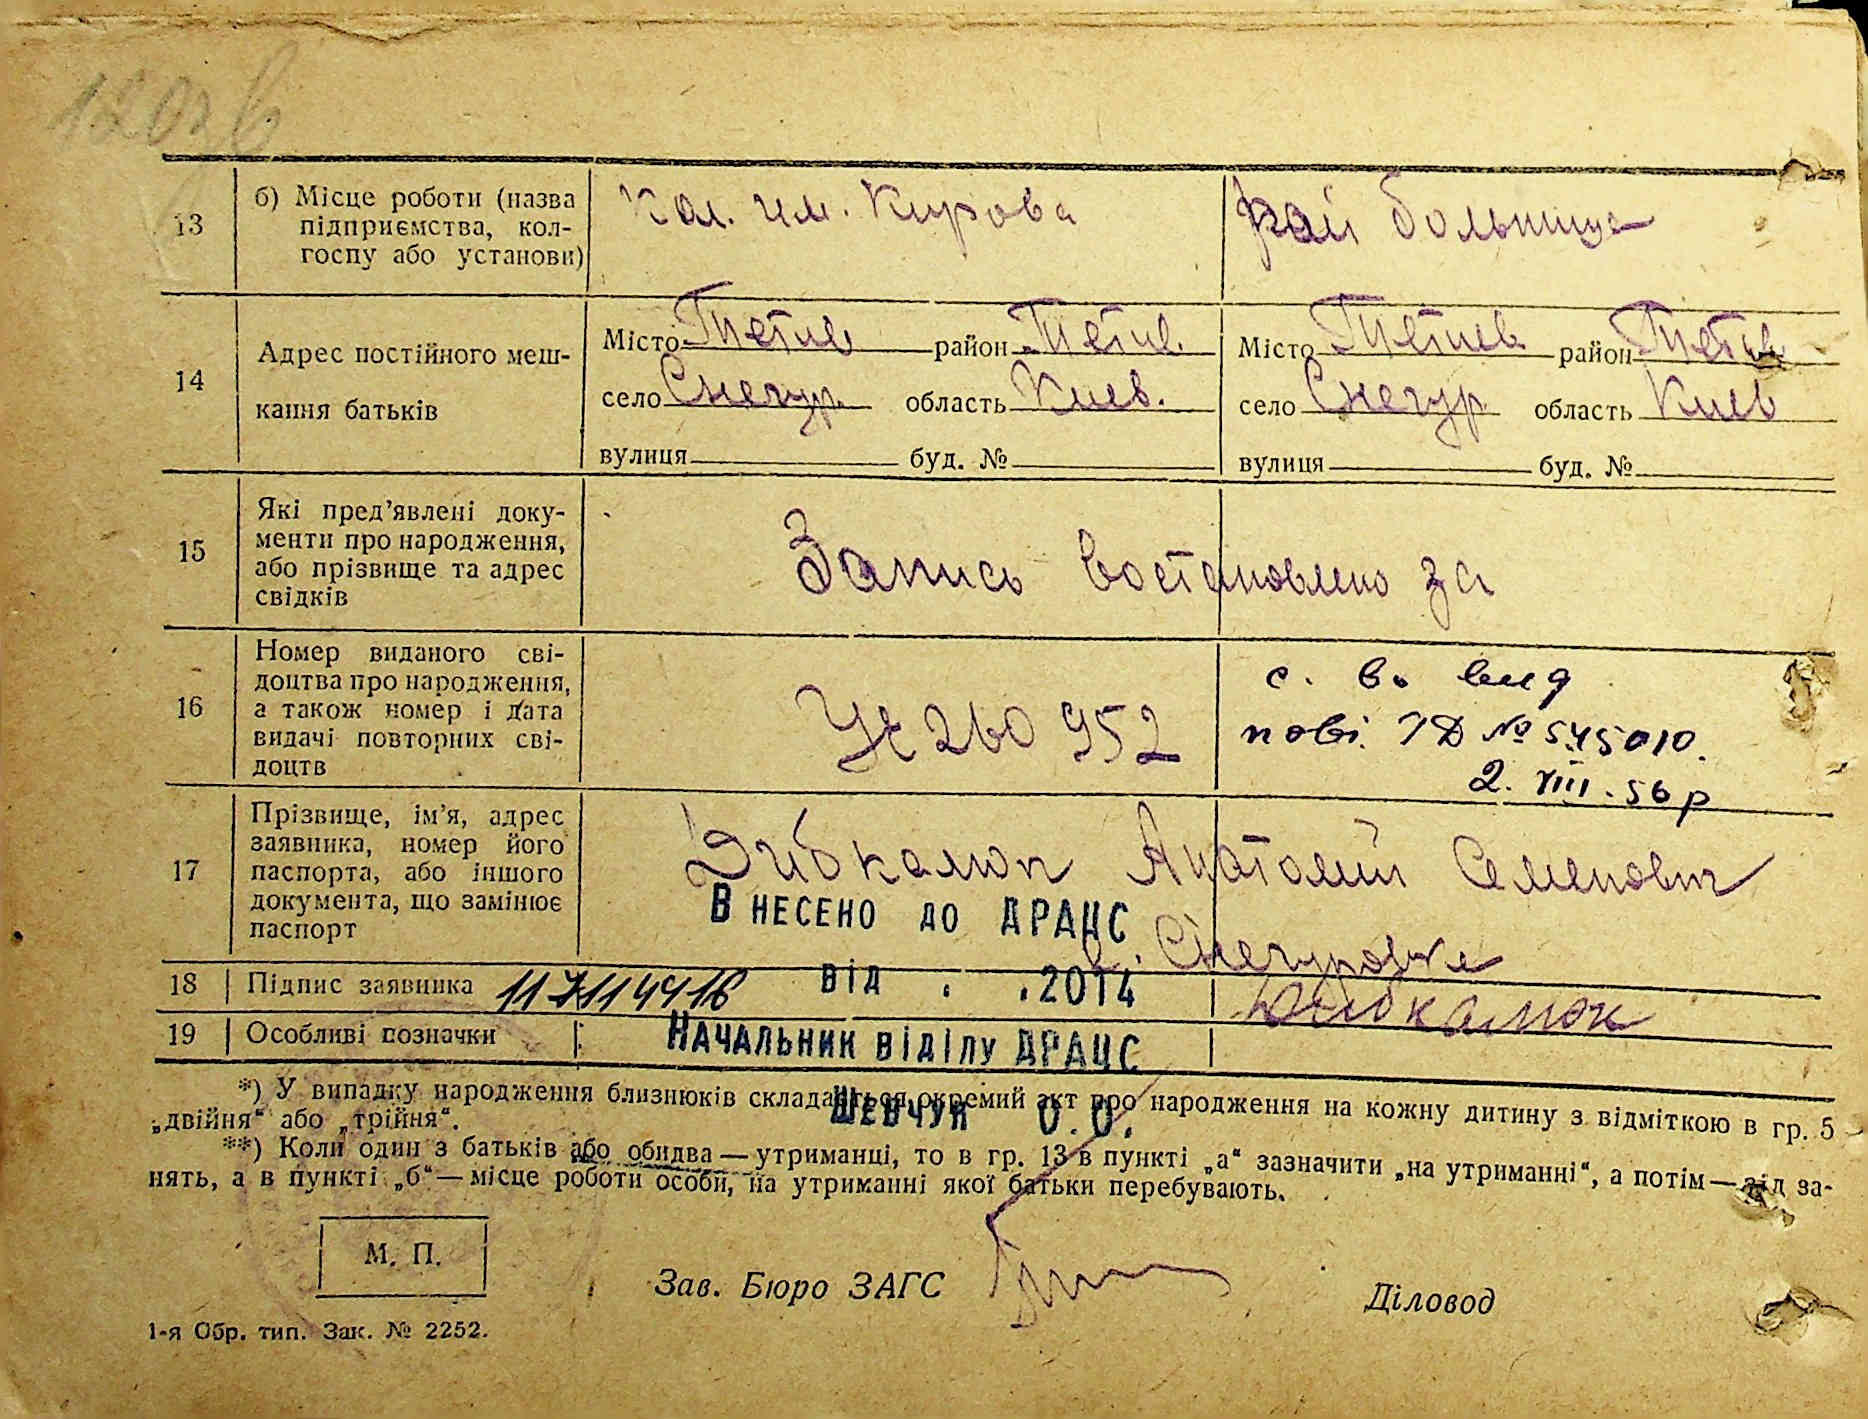 13
б) Місце роботи (назва
підприємства, кол-
госпу або установи)
Кол. им. Кирова
Рай больница
14
Адрес постійного меш-
кання батьків
Місто Тетиев район Тетив.
село Снегур. область Киев.
вулиця буд. №
Місто Тетиев район Тетив
село Снегур область Киев
вулиця буд. №
15
Які пред’явлені доку-
менти про народження,
або прізвище та адрес
свідків
Запись востановлено за
16
Номер виданого сві-
доцтва про народження,
а також номер і дата
видачі повторних сві-
доцтв
260952
с. во вид
повт. № 545010.
2. VIII. 56 р
17
Прізвище, ім’я, адрес
заявника, номер його
паспорта, або іншого
документа, що замінює
паспорт
Анатолий Семенович
с. Снегуровка
Внесено до ДРАЦС
18
Підпис заявника
від . .2014
19
Особливі позначки
Начальник відділу ДРАЦС
Шевчук О.О.
*) У випадку народження близнюків складається окремий акт про народження на кожну дитину з відміткою в гр. 5
„двійня“ або „трійня“.
**) Коли один з батьків або обидва — утриманці, то в гр. 13 в пункті „а“ зазначити „на утриманні“, а потім — від за-
нять, а в пункті „б“ — місце роботи особи, на утриманні якої батьки перебувають.
М. П.
Зав. Бюро ЗАГС
Діловод
1-я Обр. тип. Зак. № 2252.